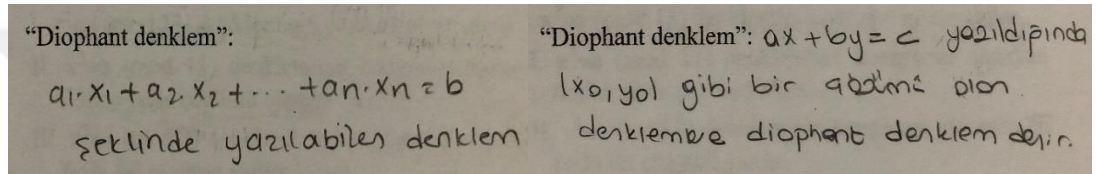 “Diophant denklem”:
a₁·x₁ + a₂·x₂ + ... + an·xn = b
şeklinde yazılabilen denklem
“Diophant denklem”: ax + by = c yazıldığında
(x₀, y₀) gibi bir çözümü olan
denklemlere diophant denklem denir.